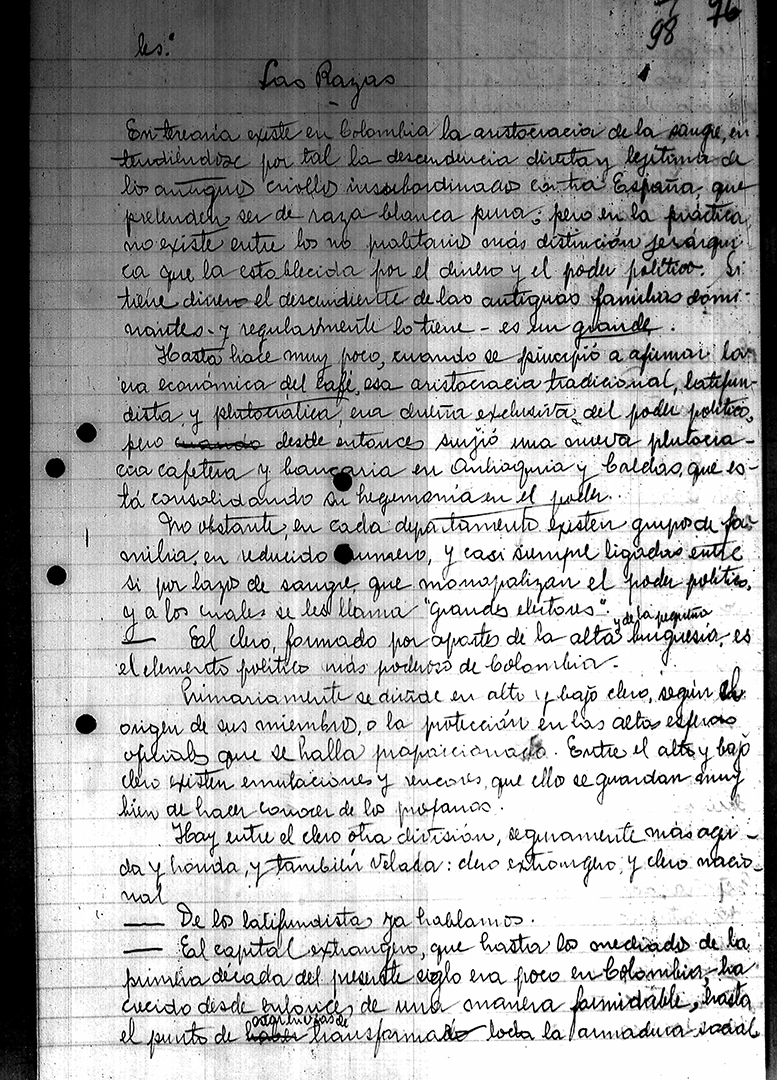 76
98
les."
Las Razas
En teoría existe en Colombia la aristocracia de la sangre, en-
tendiéndose por tal la descendencia directa y legítima de
los antiguos criollos insubordinados contra España, que
pretenden ser de raza blanca pura; pero en la práctica
no existe entre los no proletarios más distinción jerárqui-
ca que la establecida por el dinero y el poder político. Si
tiene dinero el descendiente de las antiguas familias domi-
nantes - y regularmente lo tiene - es un grande.
Hasta hace muy poco, cuando se principió a afirmar la
era económica del café, esa aristocracia tradicional, latifun-
dista y plutocrática, era dueña exclusiva del poder político,
pero cuando desde entonces surjió una nueva plutocra-
cia cafetera y bancaria en Antioquia y Caldas, que es-
tá consolidando su hegemonía en el poder.
No obstante, en cada departamento existen grupos de fa-
milia, en reducido número, y casi siempre ligadas entre
si por lazos de sangre, que monopolizan el poder político,
y a los cuales se les llama "Grandes electores".
— Eal clero, formado por apartes de la alta y de la pequeña burguesía, es
el elemento político más poderoso de Colombia.
Primariamente se divide en alto y bajo clero, según el
origen de sus miembros, o la protección en las altas esferas
oficiales que se halla proporcionada. Entre el alto y bajo
clero existen emulaciones y rencores, que ello se guardan muy
bien de hacer conocer de los profanos.
Hay entre el clero otra división, seguramente más agu-
da y honda, y también velada: clero extrangero y clero nacio-
nal
— De los latifundistas ya hablamos.
— El capital extrangero, que hasta los mediados de la
primera década del presente siglo era poco en Colombia, ha
crecido desde entonces de una manera formidable, hasta
el punto de haber estar en vías de transformado toda la armadura social